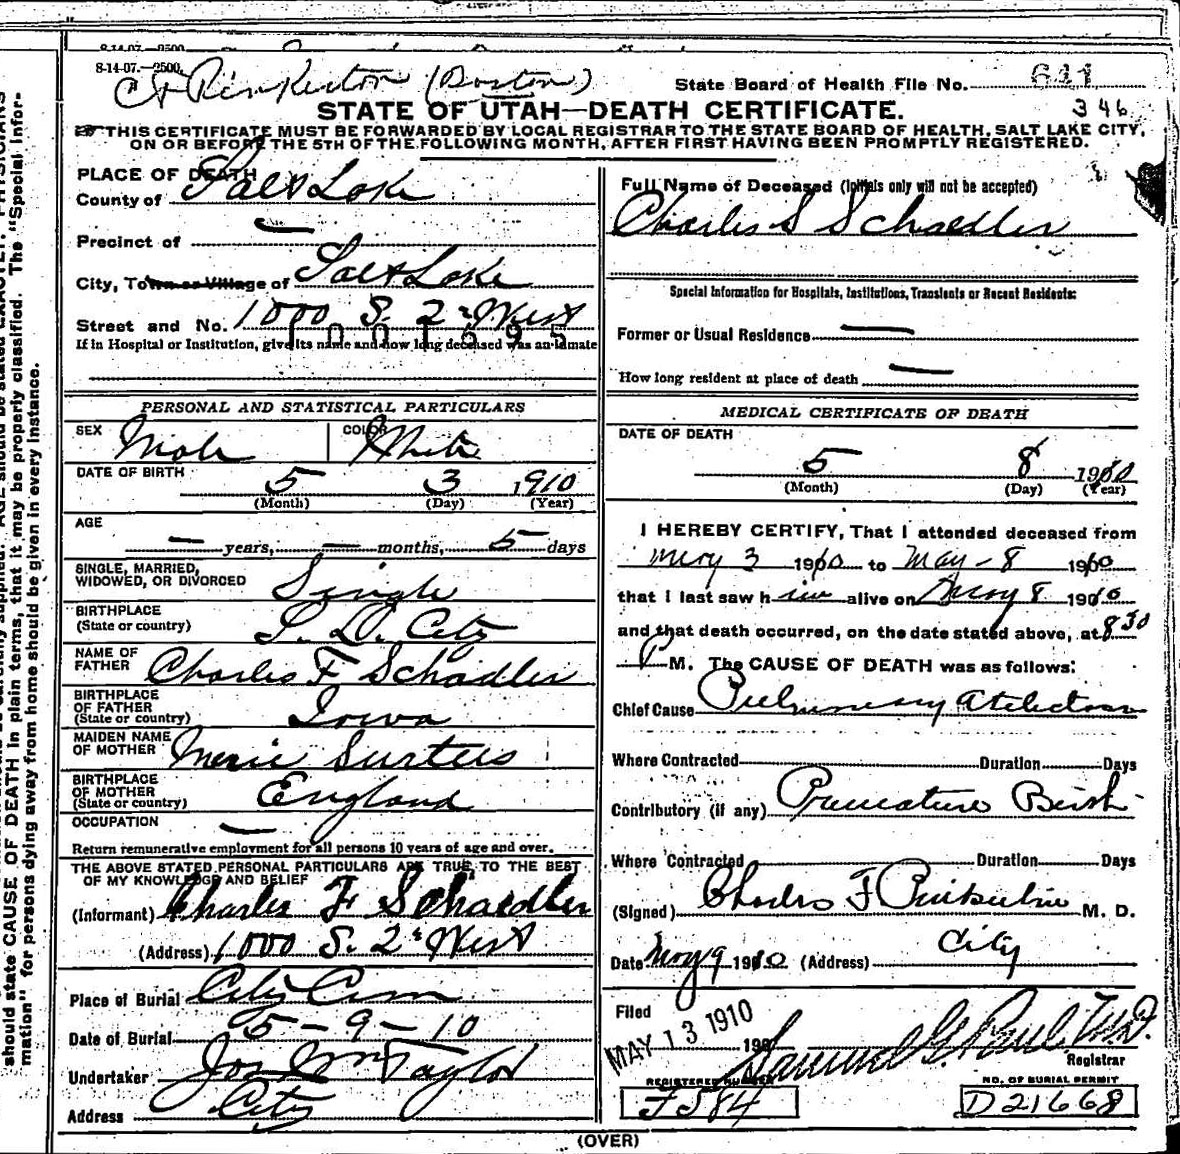 8-14-07.—2500.
8-14-07.—2500.
C F Pinkerton (Boston)
State Board of Health File No. 641
346
STATE OF UTAH—DEATH CERTIFICATE.
THIS CERTIFICATE MUST BE FORWARDED BY LOCAL REGISTRAR TO THE STATE BOARD OF HEALTH, SALT LAKE CITY,
ON OR BEFORE THE 5TH OF THE FOLLOWING MONTH, AFTER FIRST HAVING BEEN PROMPTLY REGISTERED.
PLACE OF DEATH
County of Salt Lake
Precinct of —
City, Town or Village of Salt Lake
Street and No. 1000 S. 2d West
1001695
If in Hospital or Institution, give its name and how long deceased was an inmate
PERSONAL AND STATISTICAL PARTICULARS
SEX Male
COLOR White
DATE OF BIRTH 5 3 1910
(Month) (Day) (Year)
AGE
— years, — months, 5 days
SINGLE, MARRIED,
WIDOWED, OR DIVORCED Single
BIRTHPLACE
(State or country) S. L. City
NAME OF
FATHER Charles F Schaedler
BIRTHPLACE
OF FATHER
(State or country) Iowa
MAIDEN NAME
OF MOTHER Marie Surtees
BIRTHPLACE
OF MOTHER
(State or country) England
OCCUPATION —
Return remunerative employment for all persons 10 years of age and over.
THE ABOVE STATED PERSONAL PARTICULARS ARE TRUE TO THE BEST
OF MY KNOWLEDGE AND BELIEF
(Informant) Charles F Schaedler
(Address) 1000 S. 2d West
Place of Burial City Cem
Date of Burial 5-9-10
Undertaker Jos Wm Taylor
Address City
Full Name of Deceased (Initials only will not be accepted)
Charles S Schaedler
Special Information for Hospitals, Institutions, Transients or Recent Residents:
Former or Usual Residence —
How long resident at place of death —
MEDICAL CERTIFICATE OF DEATH
DATE OF DEATH
5 8 1910
(Month) (Day) (Year)
I HEREBY CERTIFY, That I attended deceased from
May 3 1910 to May - 8 1910
that I last saw him alive on May 8 1910
and that death occurred, on the date stated above, at 8 30
P M. The CAUSE OF DEATH was as follows:
Chief Cause Pulmonary Atelectasis
Where Contracted Duration Days
Contributory (if any) Premature Birth
Where Contracted Duration Days
(Signed) Charles F Pinkerton M. D.
Date May 9 1910 (Address) City
Filed
MAY 13 1910
190
Samuel G. Paul M.D.
Registrar
REGISTERED NUMBER
F584
NO. OF BURIAL PERMIT
D21668
(OVER)
should state CAUSE OF DEATH in plain terms, that it may be properly classified. The "Special Infor-
mation" for persons dying away from home should be given in every instance.